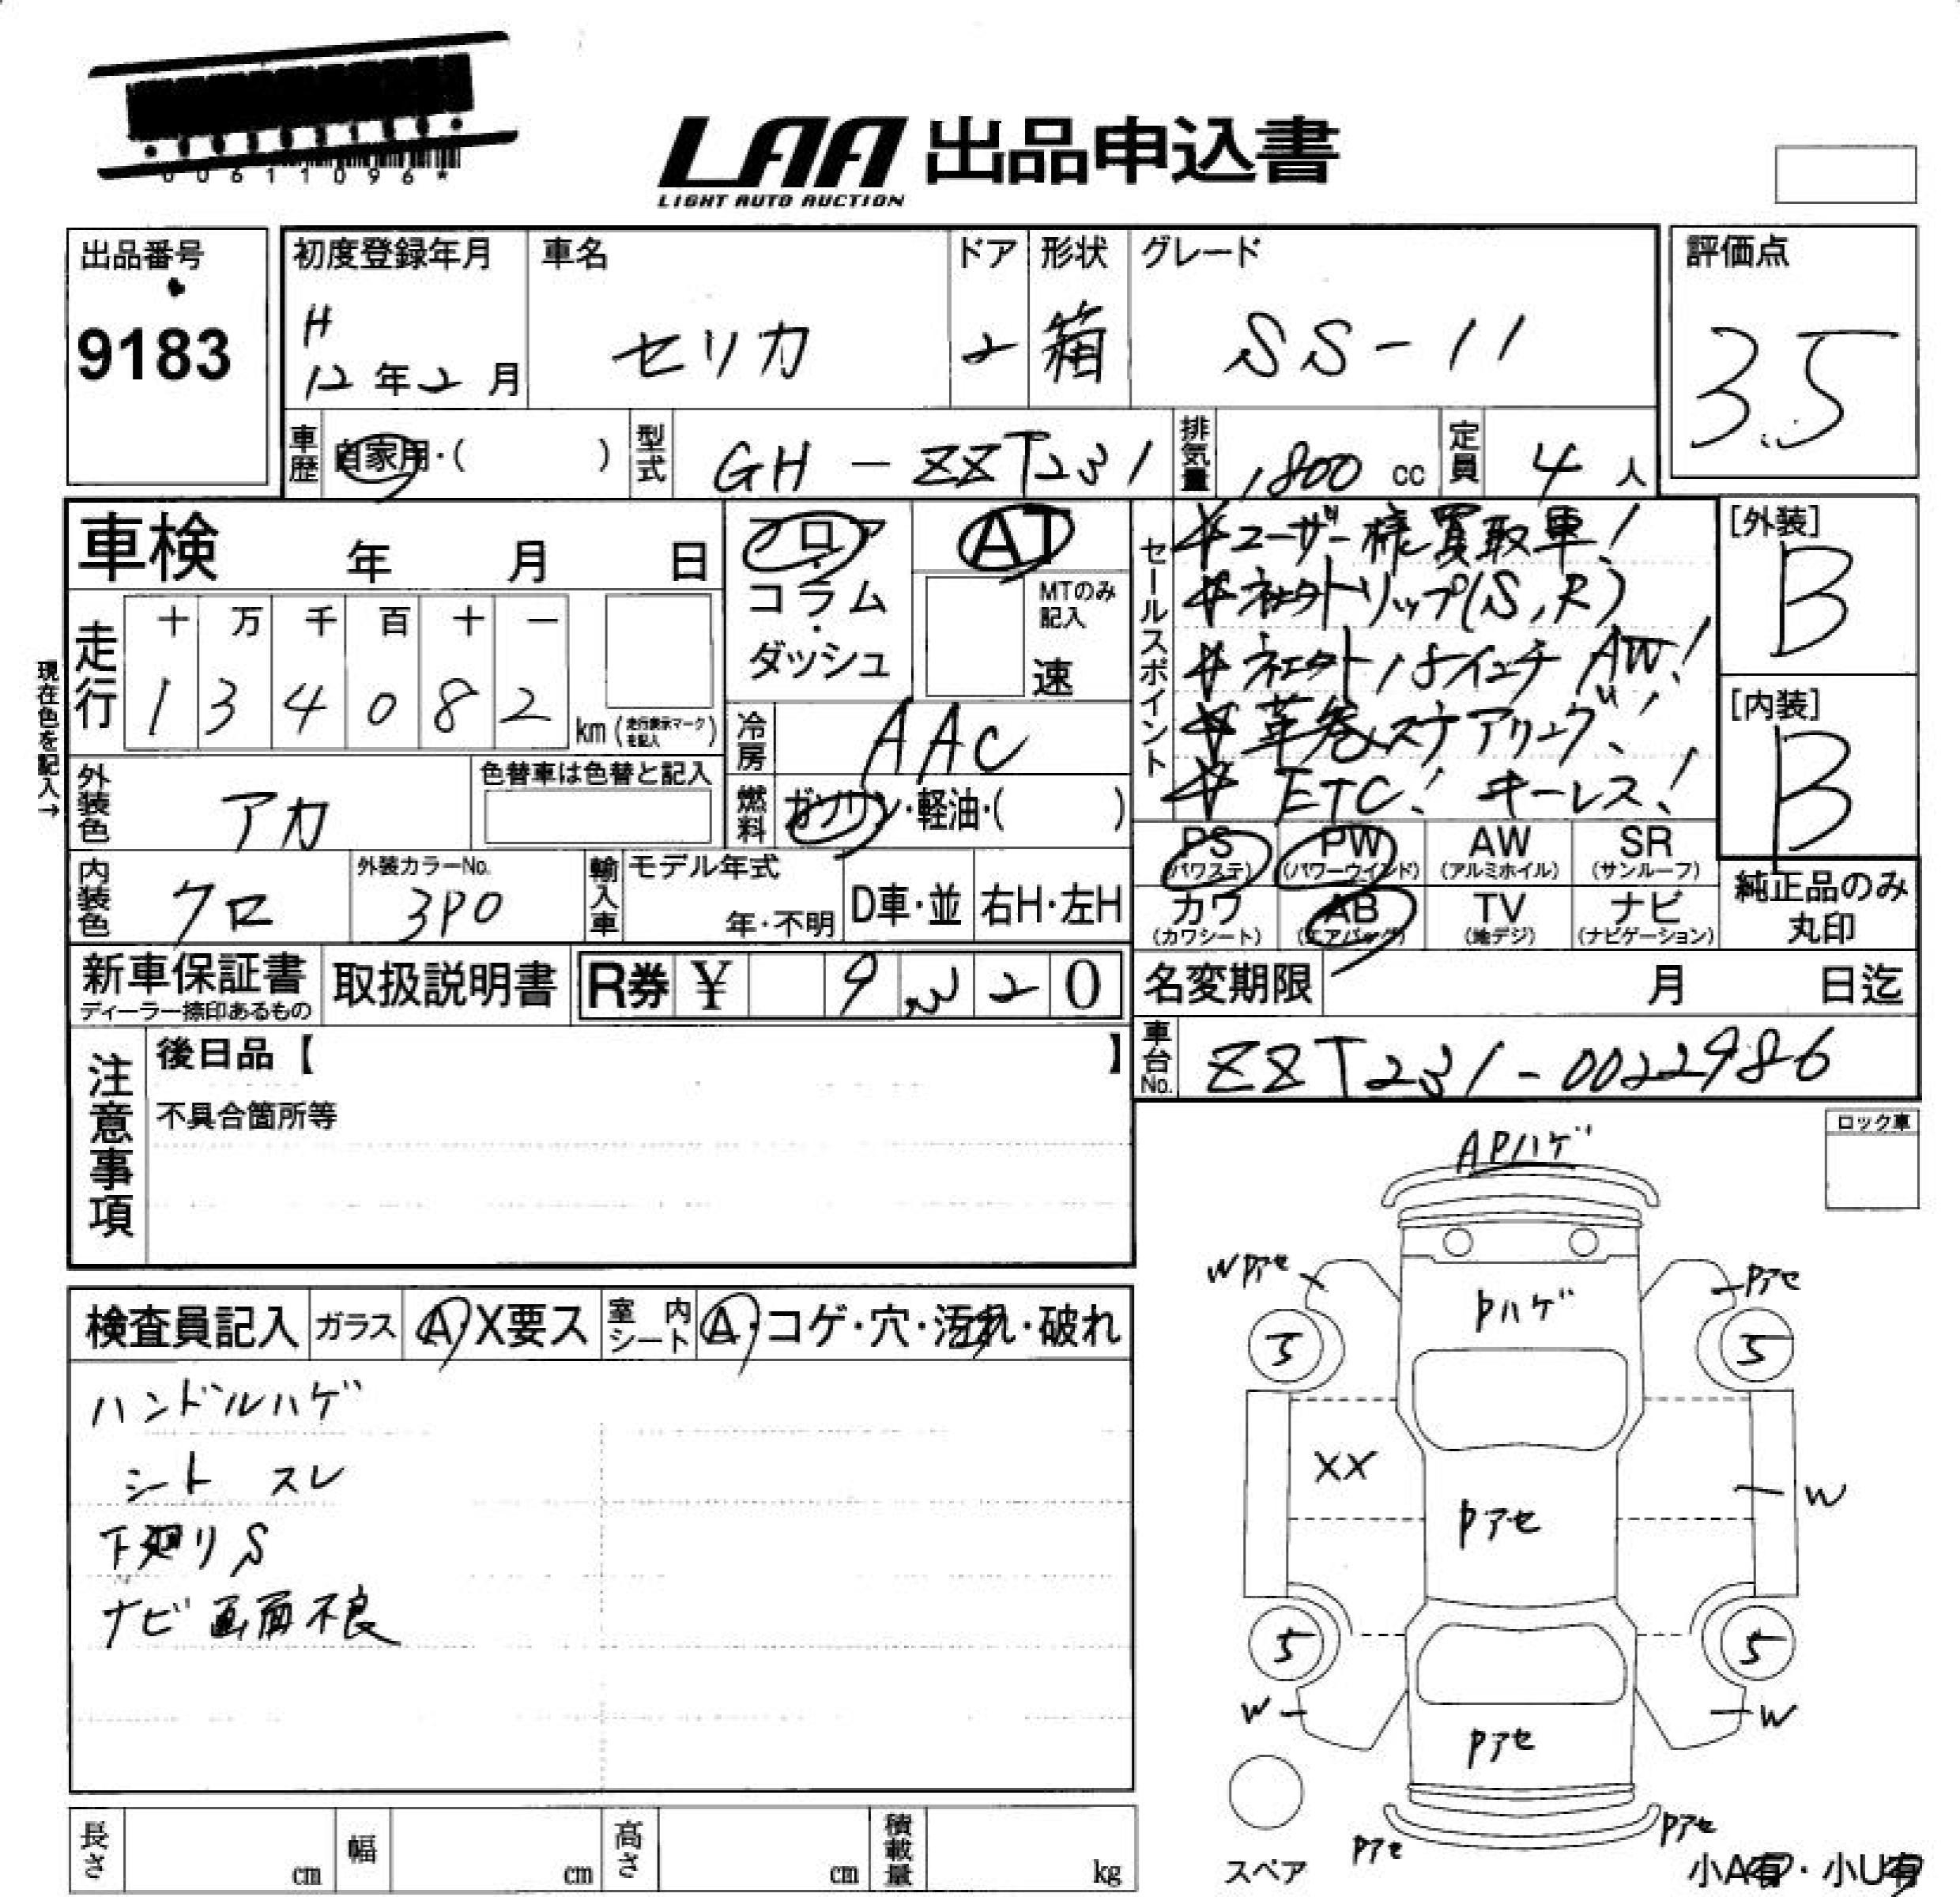 00611096*
LAA 出品申込書
LIGHT AUTO AUCTION
出品番号
9183
初度登録年月
H
12年2月
車名
セリカ
ドア
2
形状
箱
グレード
SS-11
評価点
3.5
車歴
自家用・( )
型式
GH-ZZT231
排気量
1800 cc
定員
4 人
車検 年 月 日
現在色を記入→
走行
十 万 千 百 十 一
1 3 4 0 8 2
km (走行表示マークを記入)
フロア・コラム・ダッシュ
AT
MTのみ記入
速
冷房
AAC
燃料
ガソリン・軽油・( )
外装色
アカ
色替車は色替と記入
内装色
クロ
外装カラーNo.
3P0
輸入車
モデル年式
年・不明
D車・並
右H・左H
セールスポイント
ユーザー様買取車!
ネオクトリップ(S,R)
AW!
革巻ステアリング!
ETC! キーレス!
[外装]
B
[内装]
B
PS (パワステ)
PW (パワーウインド)
AW (アルミホイル)
SR (サンルーフ)
カワ (カワシート)
AB (エアバッグ)
TV (地デジ)
ナビ (ナビゲーション)
純正品のみ丸印
新車保証書
ディーラー捺印あるもの
取扱説明書
R券 ¥ 9 3 2 0
名変期限 月 日迄
車台No.
ZZT231-0022986
注意事項
後日品【 】
不具合箇所等
ロック車
検査員記入
ガラス
A・X要ス
室内シート
A・コゲ・穴・汚れ・破れ
ハンドルハゲ
シート スレ
下廻りS
ナビ画面不良
APハゲ
WPアセ
Pアセ
Pハゲ
5
5
XX
Pアセ
W
5
5
W
W
Pアセ
Pアセ
Pアセ
スペア
小A有・小U有
長さ cm
幅 cm
高さ cm
積載量 kg